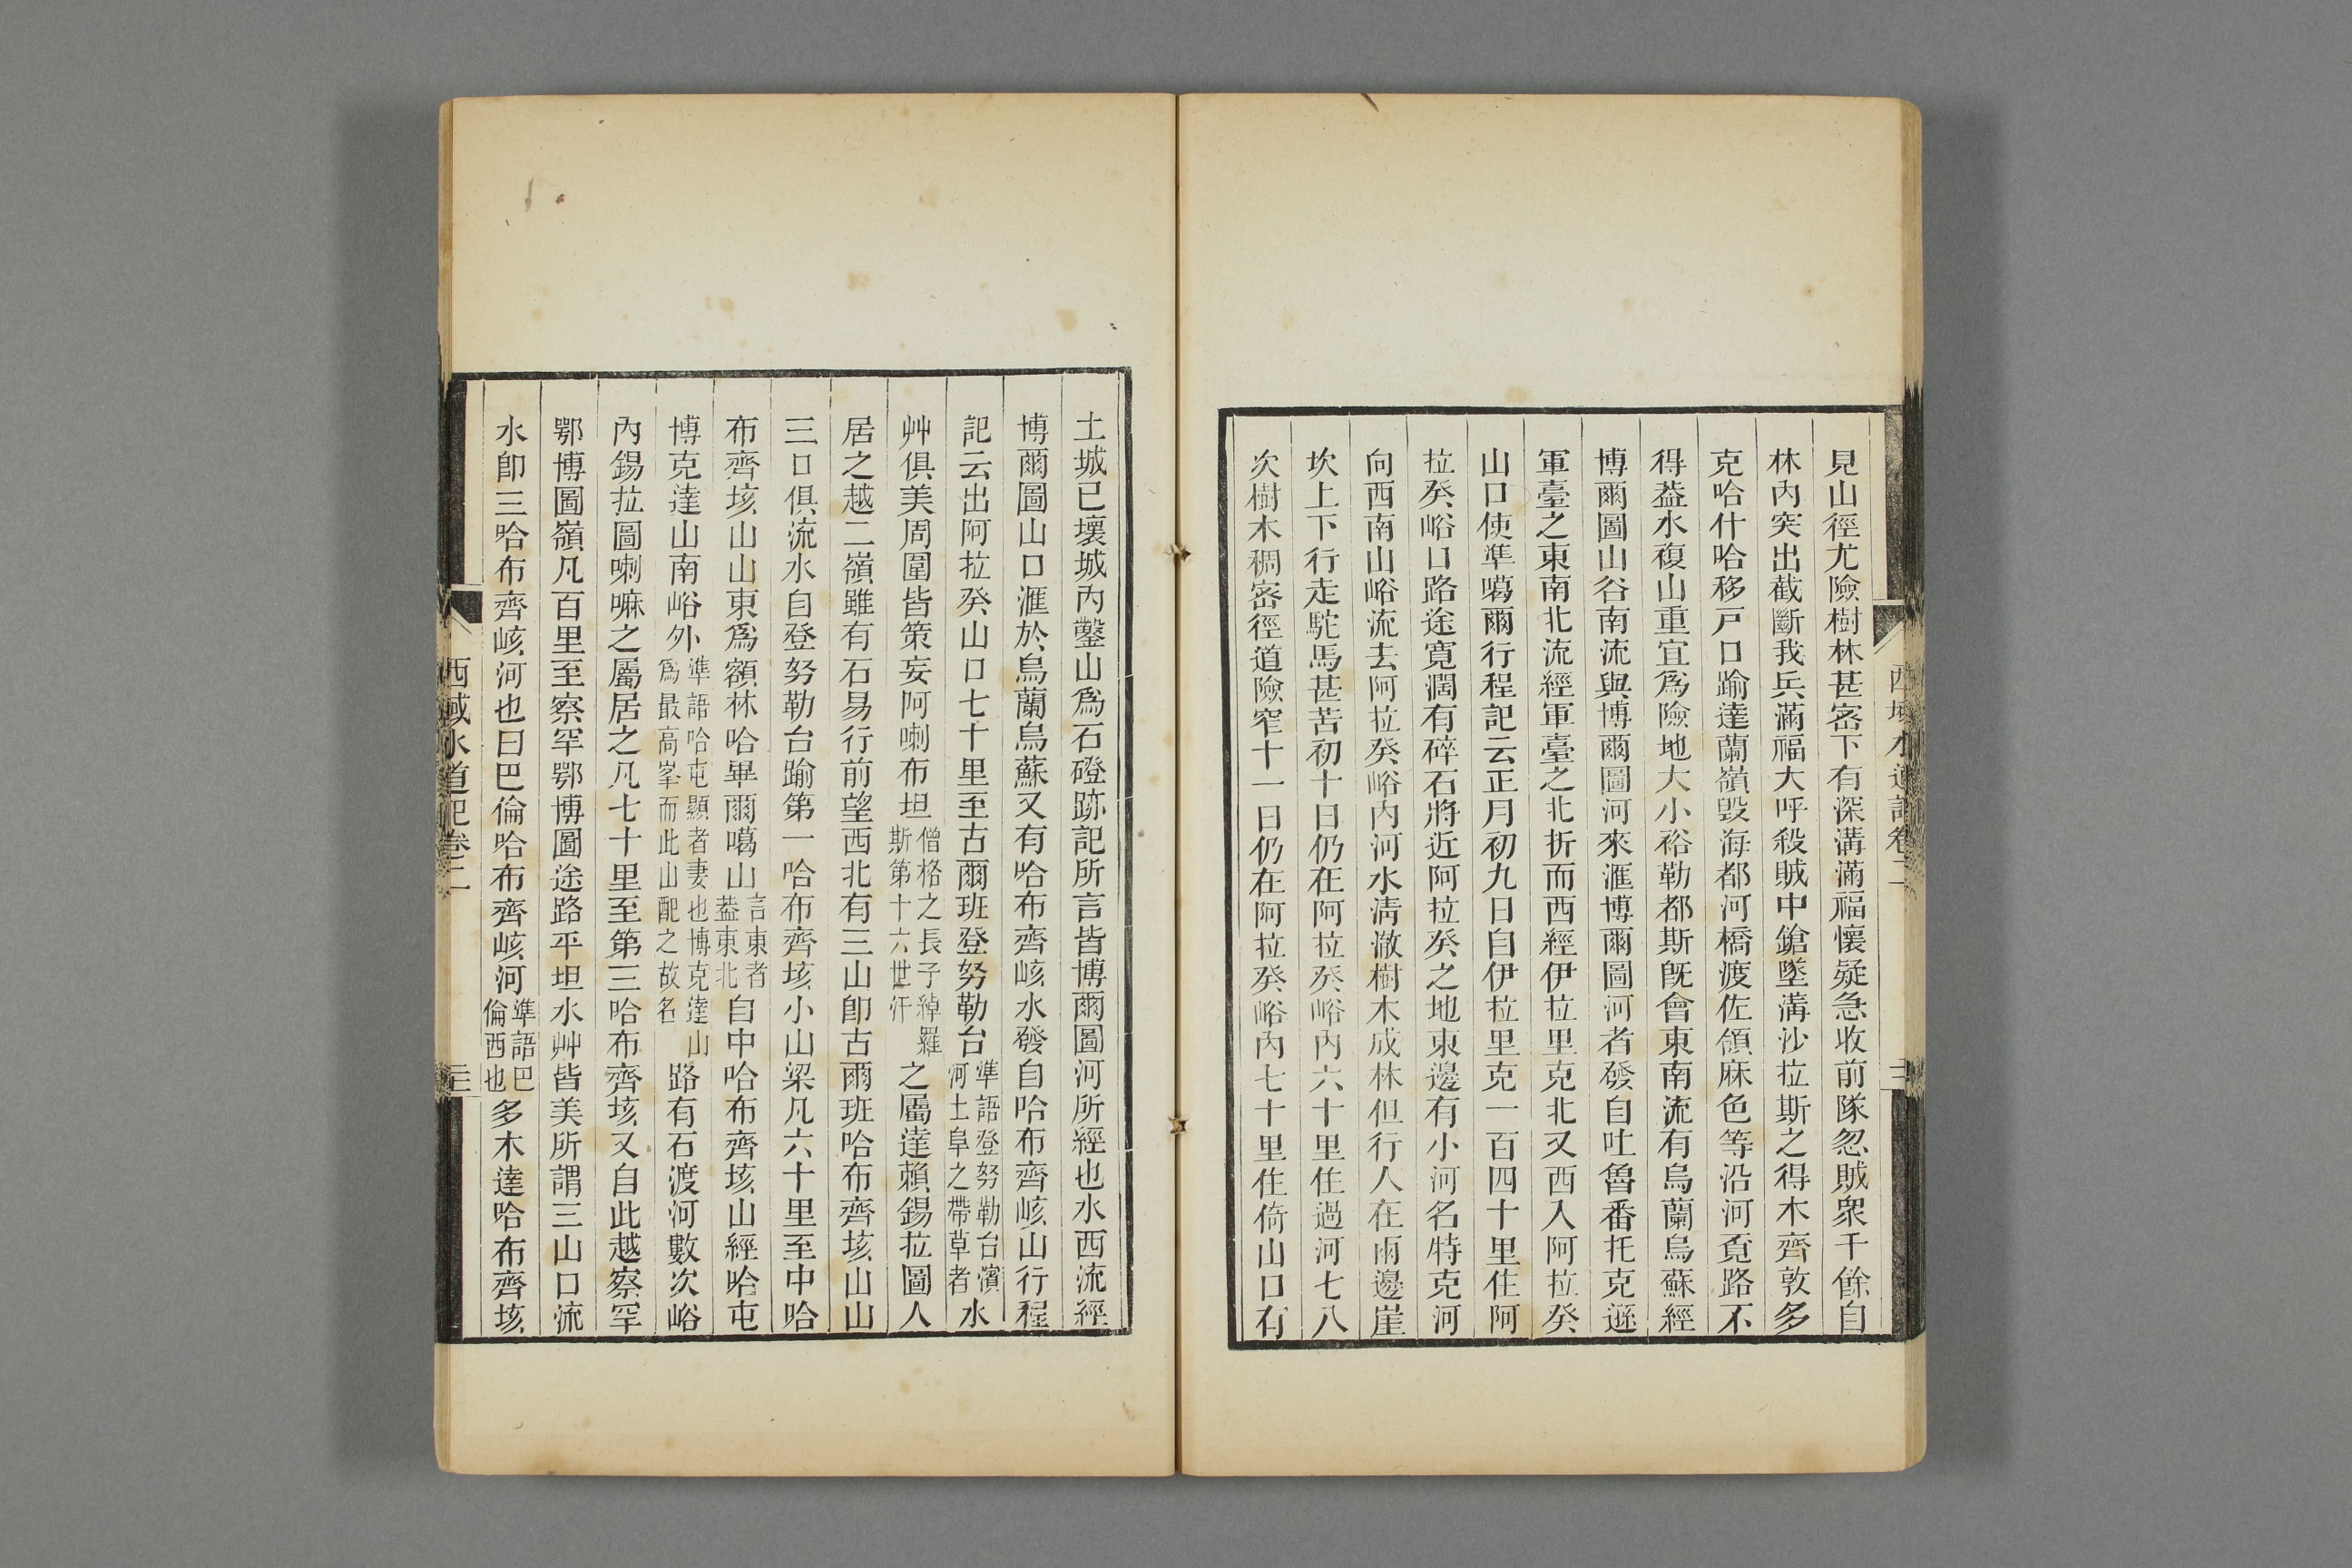 西域水道記卷二
見山徑尤險樹林甚密下有深溝滿福懷疑急收前隊忽賊衆千餘自
林內突出截斷我兵滿福大呼殺賊中鎗墜溝沙拉斯之得木齊敦多
克哈什哈移戸口踰達蘭嶺毀海都河橋渡佐領麻色等沿河覔路不
得葢水複山重宜爲險地大小裕勒都斯旣會東南流有烏蘭烏蘇經
博爾圖山谷南流與博爾圖河來滙博爾圖河者發自吐魯番托克遜
軍臺之東南北流經軍臺之北折而西經伊拉里克北又西入阿拉癸
山口使準噶爾行程記云正月初九日自伊拉里克一百四十里住阿
拉癸峪口路途寬濶有碎石將近阿拉癸之地東邊有小河名特克河
向西南山峪流去阿拉癸峪內河水淸澈樹木成林但行人在兩邊崖
坎上下行走駝馬甚苦初十日仍在阿拉癸峪內六十里住過河七八
次樹木稠密徑道險窄十一日仍在阿拉癸峪內七十里住倚山口有
土城已壞城內鑿山爲石磴跡記所言皆博爾圖河所經也水西流經
博爾圖山口滙於烏蘭烏蘇又有哈布齊峐水發自哈布齊峐山行程
記云出阿拉癸山口七十里至古爾班登努勒台準語登努勒台濱河土阜之帶草者水
艸俱美周圍皆策妄阿喇布坦僧格之長子綽羅斯第十六世汗之屬達賴錫拉圖人
居之越二嶺雖有石易行前望西北有三山卽古爾班哈布齊垓山山
三口俱流水自登努勒台踰第一哈布齊垓小山梁凡六十里至中哈
布齊垓山山東爲額林哈畢爾噶山言東者葢東北自中哈布齊垓山經哈屯
博克達山南峪外準語哈屯顯者妻也博克達山爲最高峯而此山配之故名路有石渡河數次峪
內錫拉圖喇嘛之屬居之凡七十里至第三哈布齊垓又自此越察罕
鄂博圖嶺凡百里至察罕鄂博圖途路平坦水艸皆美所謂三山口流
水卽三哈布齊峐河也曰巴倫哈布齊峐河準語巴倫西也多木達哈布齊垓
西域水道記卷二